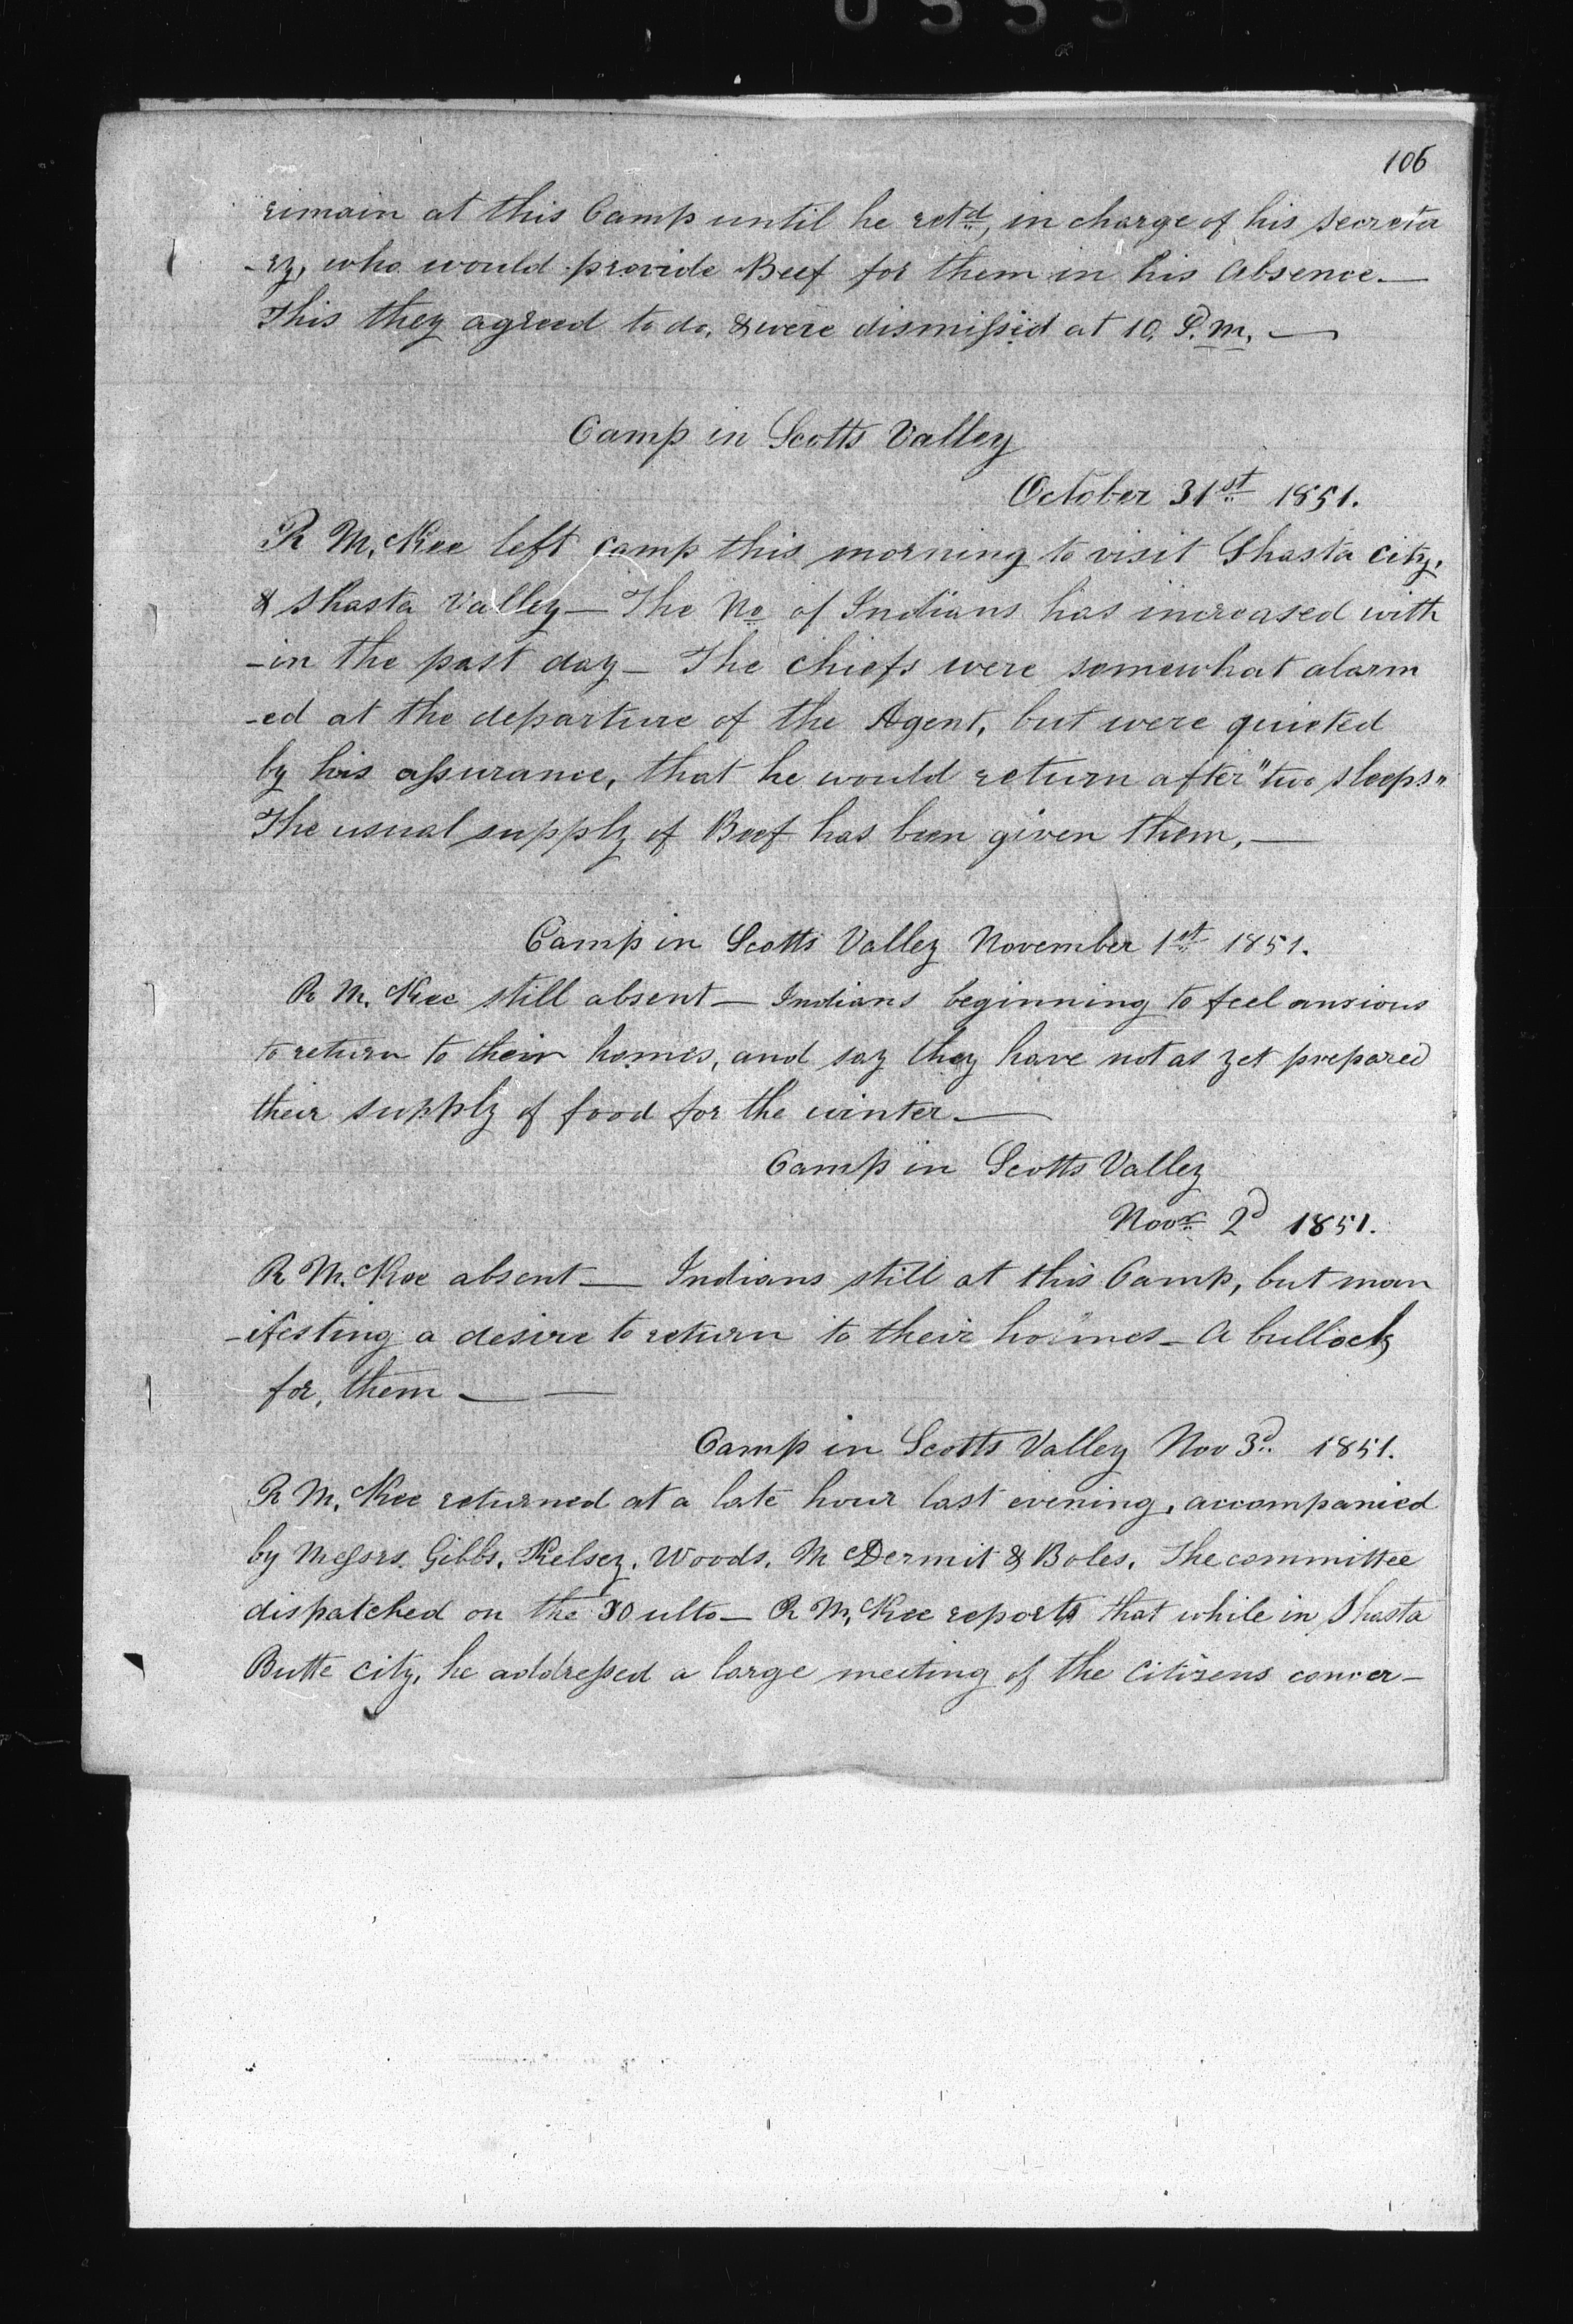 106
remain at this Camp until he retd, in charge of his secreta
-ry, who would provide Beef for them in his absence.—
This they agreed to do, & were dismissed at 10. P.M. —
Camp in Scotts Valley
October 31st 1851.
R McKee left camp this morning to visit Shasta city,
& Shasta Valley— The No of Indians has increased with
-in the past day— The chiefs were somewhat alarm
-ed at the departure of the Agent, but were quieted
by his assurance, that he would return after "two sleeps"
The usual supply of Beef has been given them,—
Camp in Scotts Valley November 1st 1851.
R McKee still absent— Indians beginning to feel anxious
to return to their homes, and say they have not as yet prepared
their supply of food for the winter—
Camp in Scotts Valley
Novr 2d 1851.
R McKee absent— Indians still at this Camp, but man
-ifesting a desire to return to their homes— A bullock
for, them — —
Camp in Scotts Valley Nov 3d 1851.
R McKee returned at a late hour last evening, accompanied
by Messrs. Gibbs, Kelsey, Woods, McDermit & Boles, The committee
dispatched on the 30 ulto— R McKee reports that while in Shasta
Butte city, he addressed a large meeting of the citizens concer-